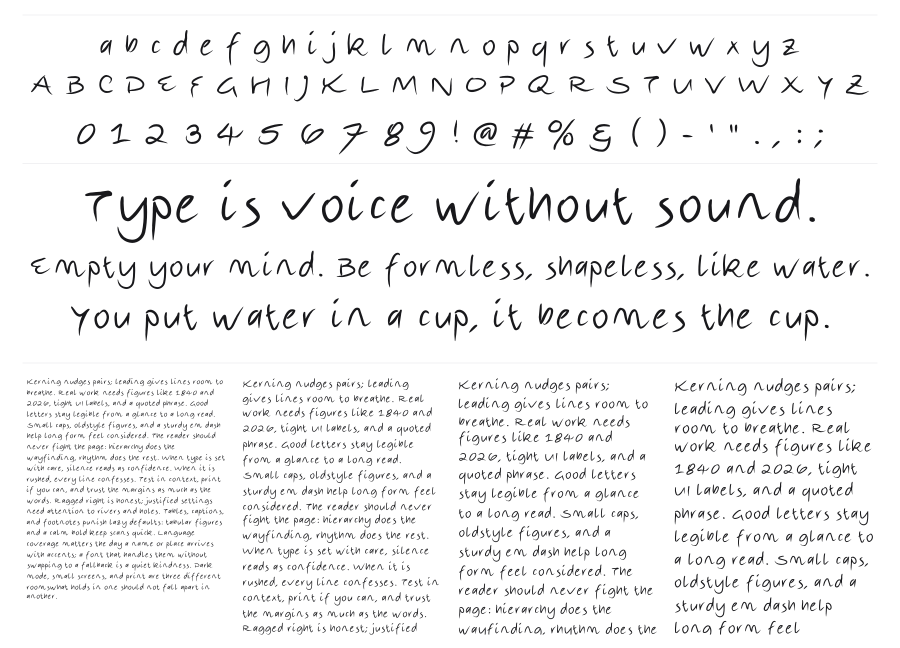 a b c d e f g h i j k l m n o p q r s t u v w x y z
A B C D E F G H I J K L M N O P Q R S T U V W X Y Z
0 1 2 3 4 5 6 7 8 9 ! @ # % & ( ) - ' " . , : ;
Type is voice without sound.
Empty your mind. Be formless, shapeless, like water.
You put water in a cup, it becomes the cup.
Kerning nudges pairs; leading gives lines room to
breathe. Real work needs figures like 1840 and
2026, tight UI labels, and a quoted phrase. Good
letters stay legible from a glance to a long read.
Small caps, oldstyle figures, and a sturdy em dash
help long form feel considered. The reader should
never fight the page: hierarchy does the
wayfinding, rhythm does the rest. When type is set
with care, silence reads as confidence. When it is
rushed, every line confesses. Test in context, print
if you can, and trust the margins as much as the
words. Ragged right is honest; justified settings
need attention to rivers and holes. Tables, captions,
and footnotes punish lazy defaults: tabular figures
and a calm bold keep scans quick. Language
coverage matters the day a name or place arrives
with accents; a font that handles them without
swapping to a fallback is a quiet kindness. Dark
mode, small screens, and print are three different
rooms;what holds in one should not fall apart in
another.
Kerning nudges pairs; leading
gives lines room to breathe. Real
work needs figures like 1840 and
2026, tight UI labels, and a quoted
phrase. Good letters stay legible
from a glance to a long read.
Small caps, oldstyle figures, and a
sturdy em dash help long form feel
considered. The reader should never
fight the page: hierarchy does the
wayfinding, rhythm does the rest.
When type is set with care, silence
reads as confidence. When it is
rushed, every line confesses. Test in
context, print if you can, and trust
the margins as much as the words.
Ragged right is honest; justified
Kerning nudges pairs;
leading gives lines room to
breathe. Real work needs
figures like 1840 and
2026, tight UI labels, and a
quoted phrase. Good letters
stay legible from a glance
to a long read. Small caps,
oldstyle figures, and a
sturdy em dash help long
form feel considered. The
reader should never fight the
page: hierarchy does the
wayfinding, rhythm does the
Kerning nudges pairs;
leading gives lines
room to breathe. Real
work needs figures like
1840 and 2026, tight
UI labels, and a quoted
phrase. Good letters stay
legible from a glance to
a long read. Small caps,
oldstyle figures, and a
sturdy em dash help
long form feel